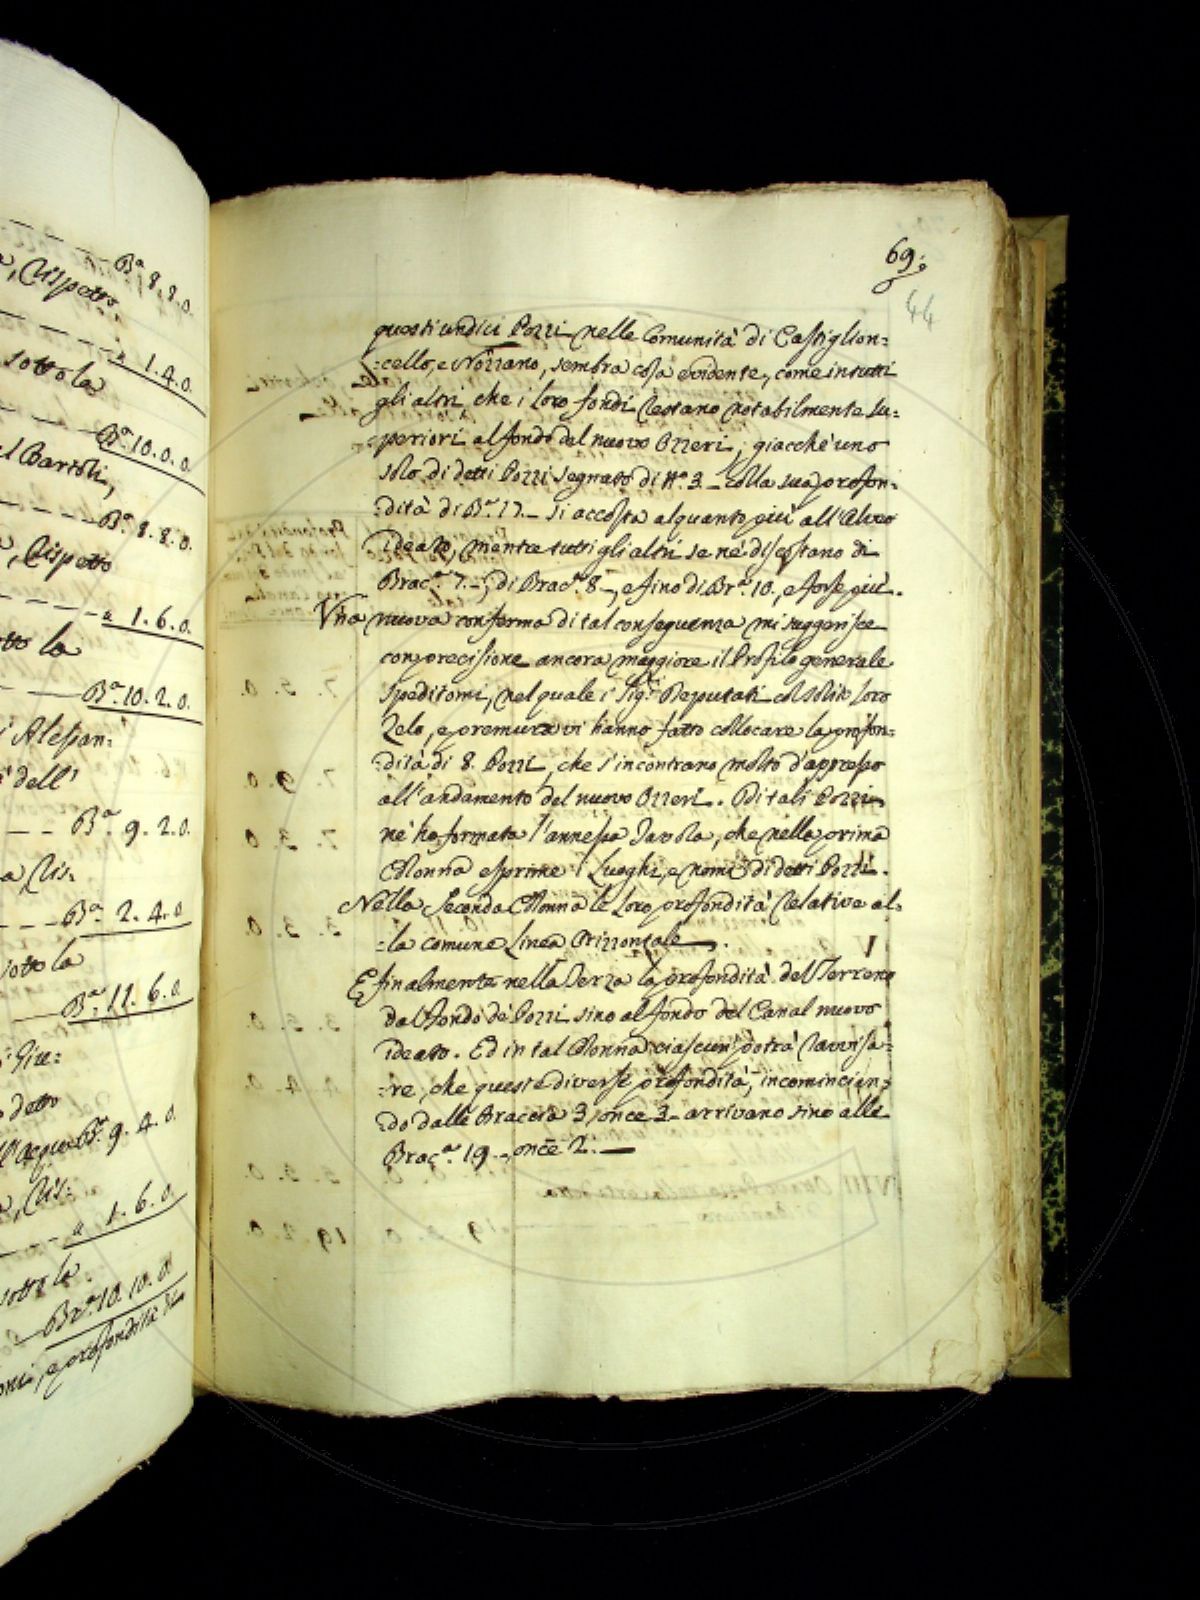 Bª 8.8.0.
, rispetto
" 1.4.0.
sotto la
Bª 10.0.0.
l Bartoli,
Bª 8.8.0.
, rispetto
" 1.6.0.
otto la
Bª 10.2.0.
i Alessan:
i dell'
Bª 9.2.0.
a, ris:
Bª 2.4.0
sotto la
Bª 11.6.0
detto
9.4.0.
, ris:
" 1.6.0.
sotto la
Brª 10.10.0
e profondità di
69.
44
questi undici Pozzi nelle Comunità di Castiglion:
:cello, e Nozzano, sembra cosa evidente, come in tutti
gli altri che i loro fondi restano notabilmente su:
:periori al fondo del nuovo Ozzeri, giacchè uno
solo di detti Pozzi segnato di Nº 3. colla sua profon:
:dità di Bª 17. si accosta alquanto più all'Alveo
ideato, mentre tutti gli altri se ne discostano di
Bracª 7. , di Bracª 8. , e fino di Brª 10., e forse più.
Una nuova conferma di tal conseguenza mi suggerisce
con precisione ancora maggiore il Profilo generale
speditomi, nel quale i Sigʳⁱ Deputati col solito loro
Zelo, e premura vi hanno fatto collocare la profon:
:dità di 8. Pozzi, che s'incontrano molto d'appresso
all'andamento del nuovo Ozzeri. Di tali Pozzi
ne ho formata l'annessa Tavola, che nella prima
Colonna esprime i Luoghi, e nomi di detti Pozzi.
Nella Seconda Colonna le loro profondità relative al:
:la comune Linea Orizzontale.
E finalmente nella Terza la profondità del Terreno
dal fondo de' Pozzi sino al fondo del Canal nuovo
ideato. Ed in tal Colonna ciascun potrà ravvisa:
:re, che queste diverse profondità, incomincian:
:do dalle Braccia 3, once 3 arrivano sino alle
Bracª 19. , once 2.